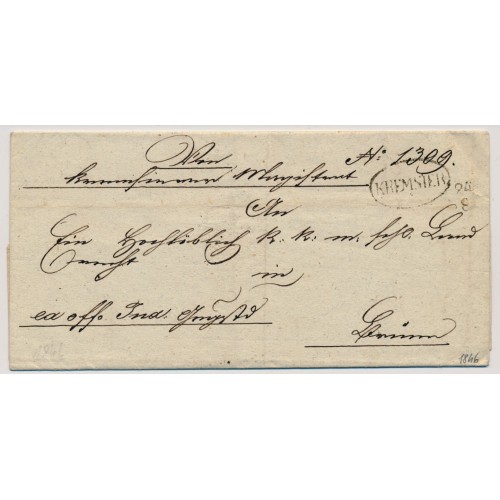 Von
N: 1309.
kremsierer Magistrat
KREMSIER
An
Ein Hochlöblich k. k. m. schl. Land
recht
in
ex offo Ind.
Brünn
1846